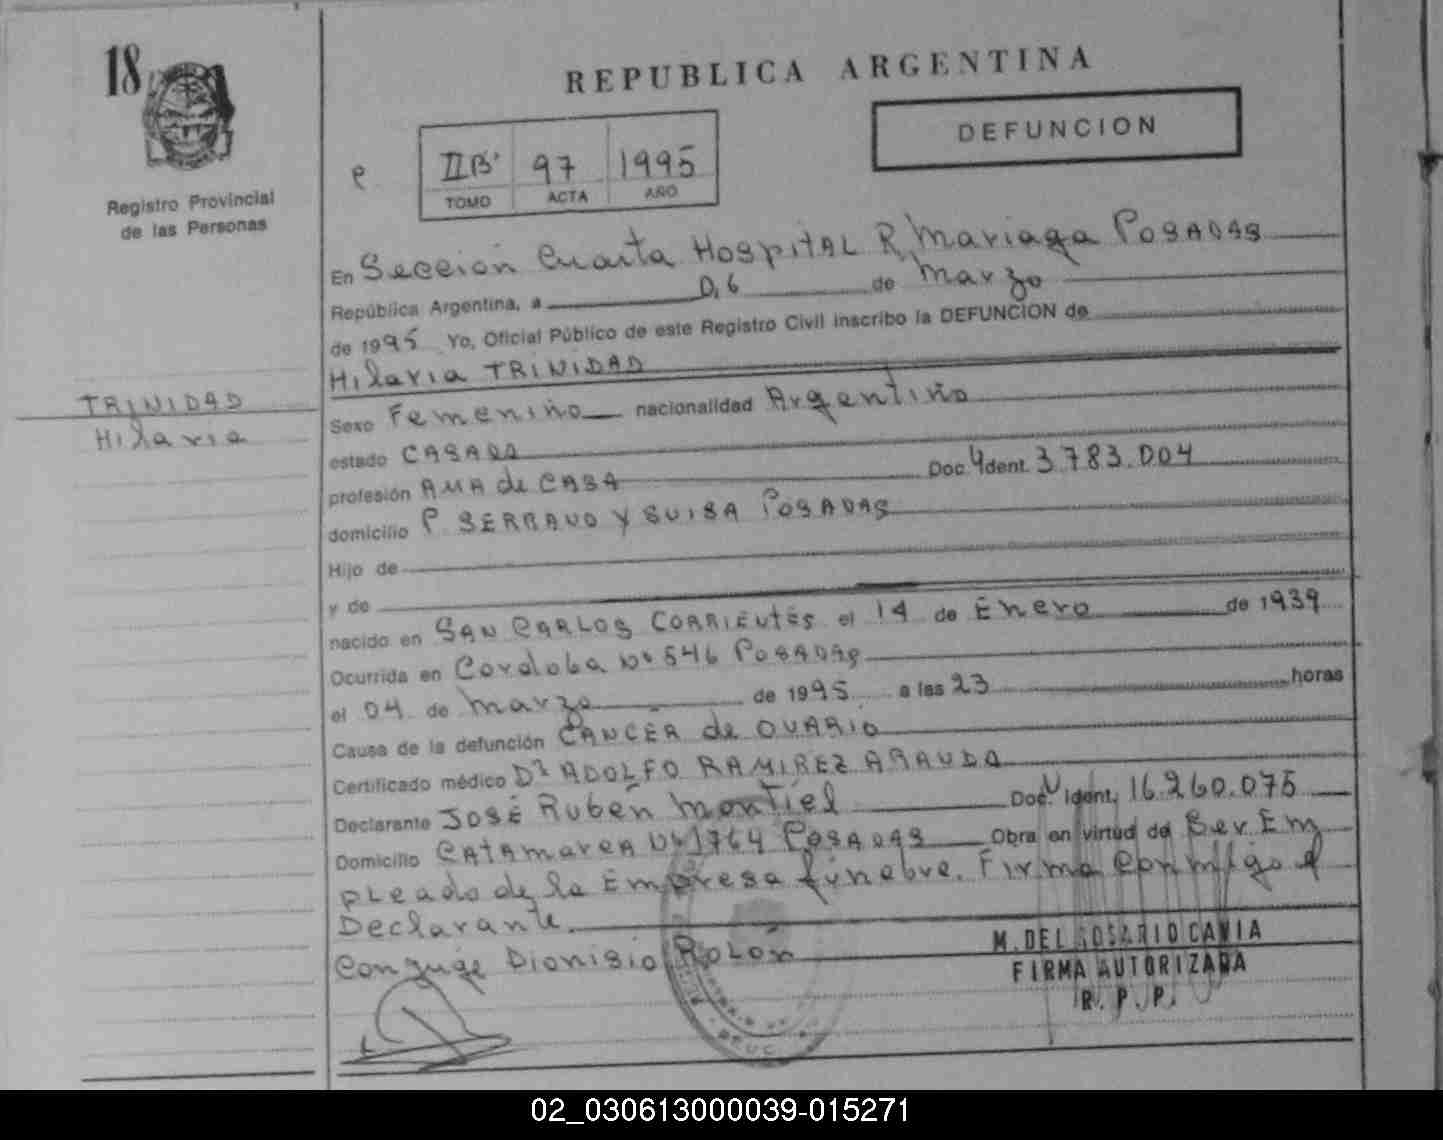 18
REPUBLICA ARGENTINA
DEFUNCION
IIB 97 1995
TOMO ACTA AÑO
Registro Provincial
de las Personas
En Sección Cuarta Hospital R, Mariaga POSADAS
República Argentina, a 0,6 de Marzo
de 1995 Yo, Oficial Público de este Registro Civil inscribo la DEFUNCION de
Hilaria TRINIDAD
TRINIDAD
Hilaria
Sexo Femenino nacionalidad Argentino
estado CASADA
profesión AMA de CASA Doc. Ident. 3.783.004
domicilio P. SERRANO Y SUISA POSADAS
Hijo de
y de
nacido en SAN CARLOS CORRIENTES el 14 de Enero de 1939
Ocurrida en Cordoba Nº 546 POSADAS
el 04 de Marzo de 1995 a las 23 horas
Causa de la defunción CANCER de OVARIO
Certificado médico Dr ADOLFO RAMIREZ ARAUDA
Declarante JOSÉ Rubén Montiel Doc. Ident. 16.260.075
Domicilio CATAMARCA Nº 1764 POSADAS Obra en virtud de Ser Em
pleado de la Empresa fúnebre. Firma Conmigo el
Declarante.
Conyuge Dionisio Rolón
M. DEL ROSARIO CAVIA
FIRMA AUTORIZADA
R. P. P.
02_030613000039-015271